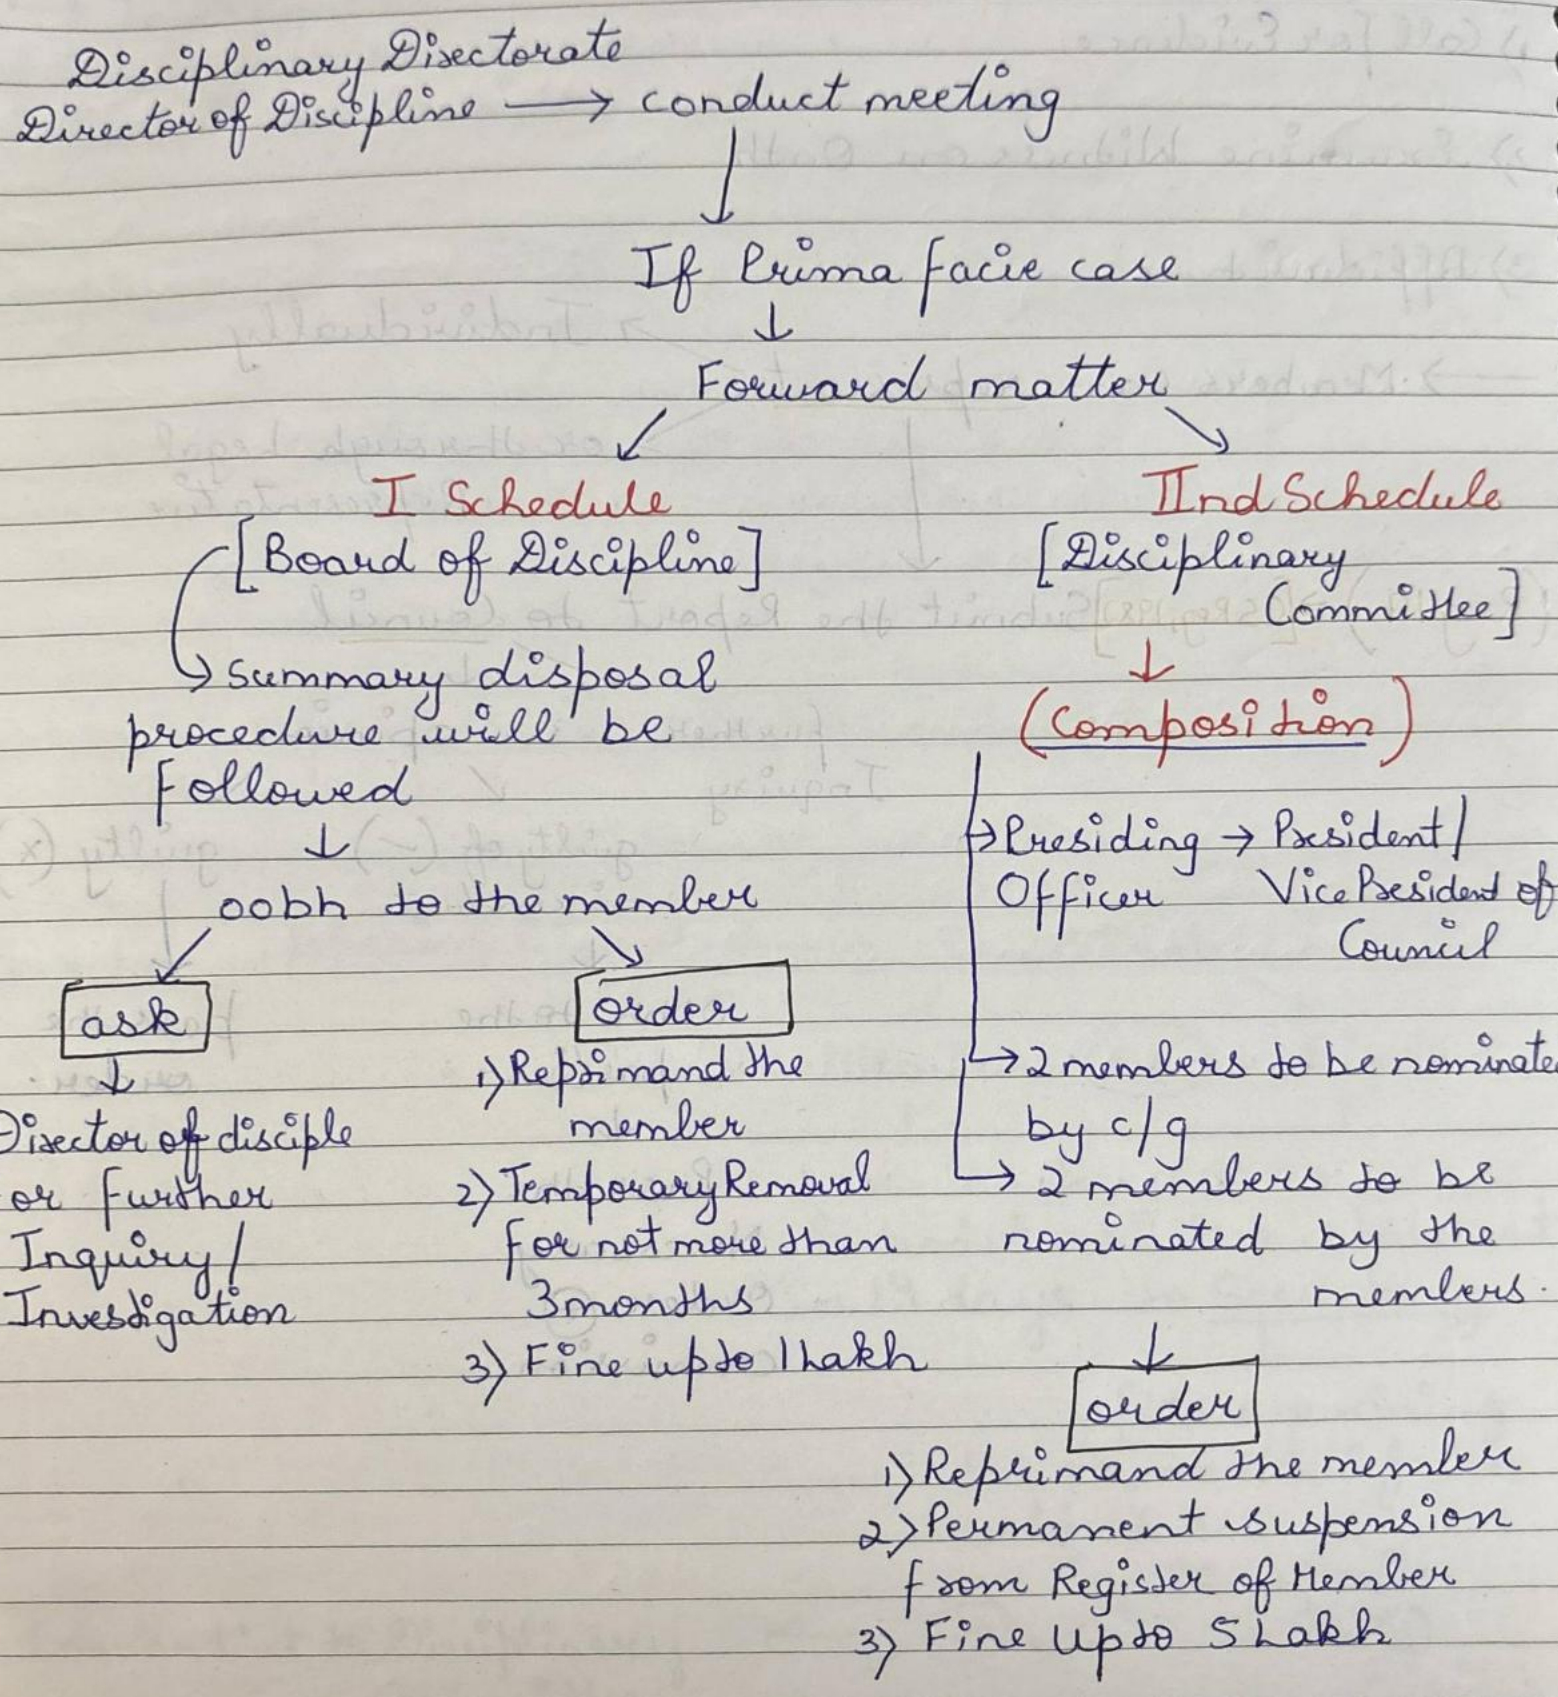 Disciplinary Directorate
Director of Discipline → conduct meeting
↓
If Prima facie case
↓
Forward matter
I Schedule
[Board of Discipline]
→ Summary disposal
procedure will be
followed
↓
oobh to the member
ask
↓
Director of disciple
or further
Inquiry/
Investigation
order
1) Reprimand the
member
2) Temporary Removal
for not more than
3 months
3) Fine upto 1 Lakh
IInd Schedule
[Disciplinary
Committee]
↓
(Composition)
→ Presiding → President/
Officer Vice President of
Council
→ 2 members to be nominate
by c/g
→ 2 members to be
nominated by the
members.
↓
order
1) Reprimand the member
2) Permanent suspension
from Register of Member
3) Fine upto 5 Lakh